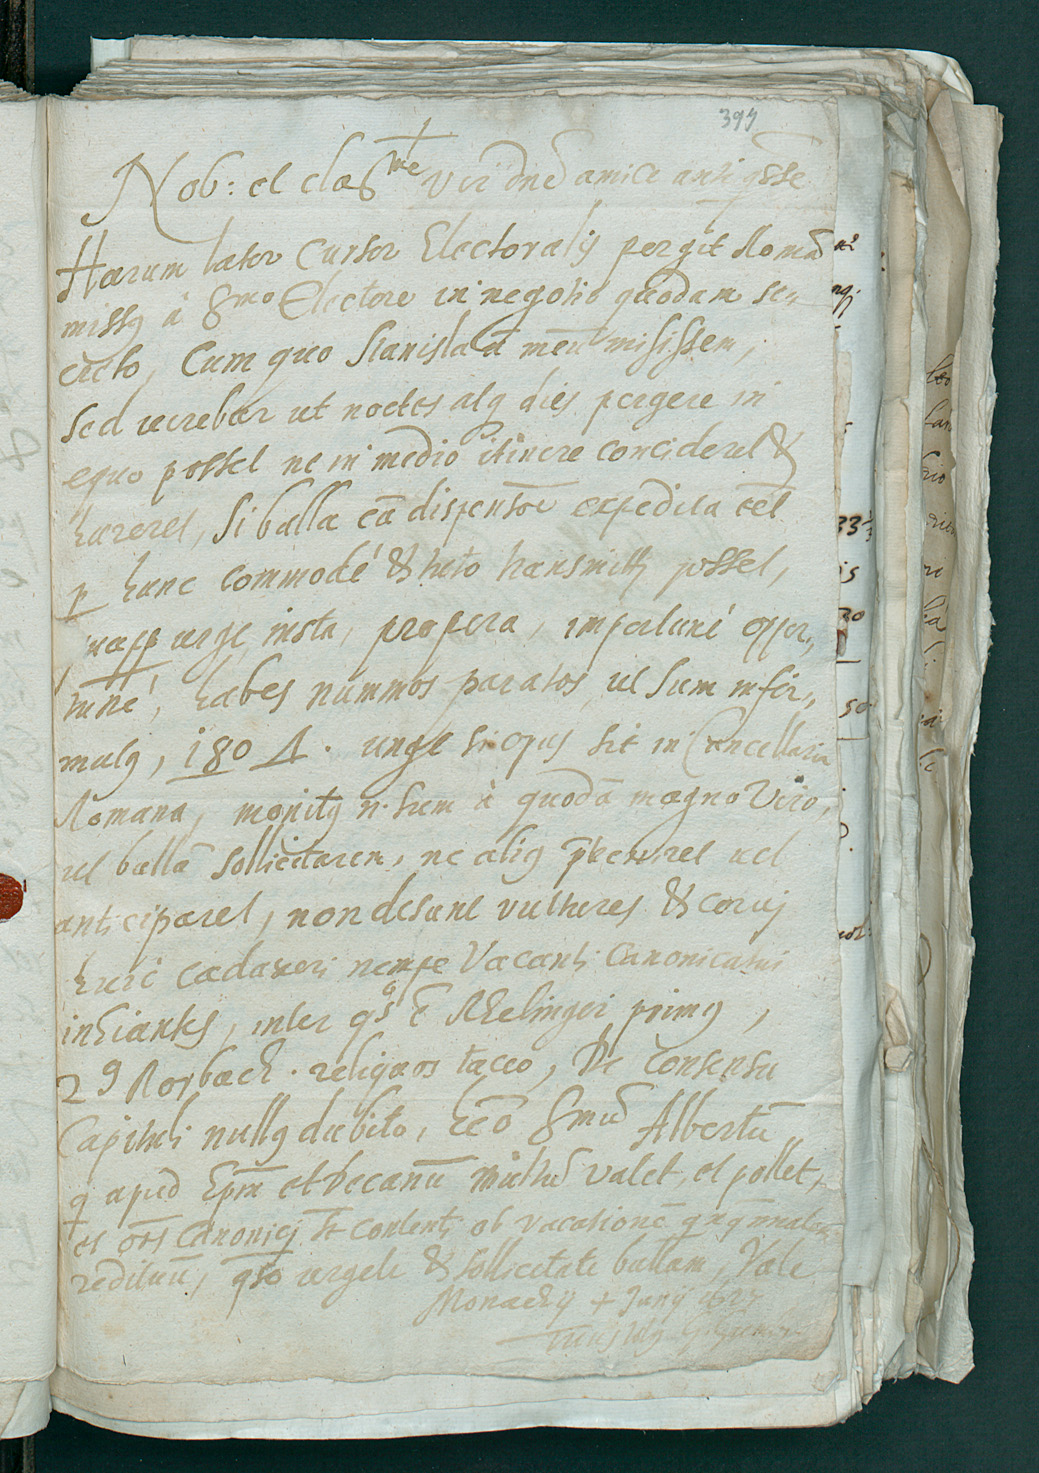 399
Nob: et claris.me vir dnē amice antiqssē
Harum lator Cursor Electoralis pergit Romā
missꝰ à Ser.mo Electore in negotio quodam se„
creto, Cum quo Stanislaū meū misissem,
sed verebar ut noctes atqꝫ dies pergere in
equo posset ne in medio itinere concideret &
hæreret, si bulla cū dispensōe expedita eēt
ꝑ hunc commodé & tuto transmitti posset,
urge insta, propera, importuné oppor„
tuné, habes nummos paratos, ut sum infor„
matꝰ, 180 urge si opus sit in Cancellaria
Romana, monitꝰ n. sum à quodā magno Viro,
ut bullā sollicitarem, ne aliꝰ pveniret vel
anticiparet, non desunt vultures & corvi
huic cadaveri nempe Vacanti Canonicatui
inhiantes, inter qos ē Rhelinger primꝰ,
2 9 Rorbach. reliquos taceo, De Consensu
Capituli nullꝰ dubito, Ser.mū Albertū
q apud Epm et decanū multū valet, et pollet,
et oēs Canonici st contenti ob vacationē
redituū, qso urgete & sollicitate bullam, Vale
Monachij Junij
Tuus